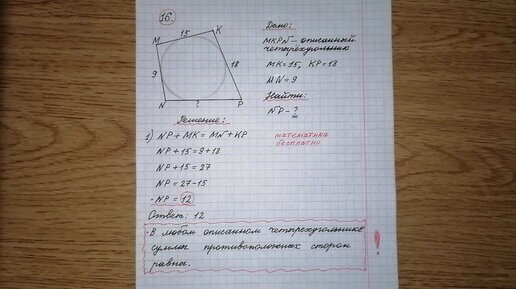 16.
15
K
M
9
18
N
?
P
Дано:
MKPN – описанный
четырёхугольник
MK = 15, KP = 18
MN = 9
Найти:
NP – ?
Решение:
1) NP + MK = MN + KP
NP + 15 = 9 + 18
NP + 15 = 27
NP = 27 - 15
NP = 12
Ответ: 12
математика
бесплатно
• В любом описанном четырехугольнике
суммы противоположных сторон
равны.
!